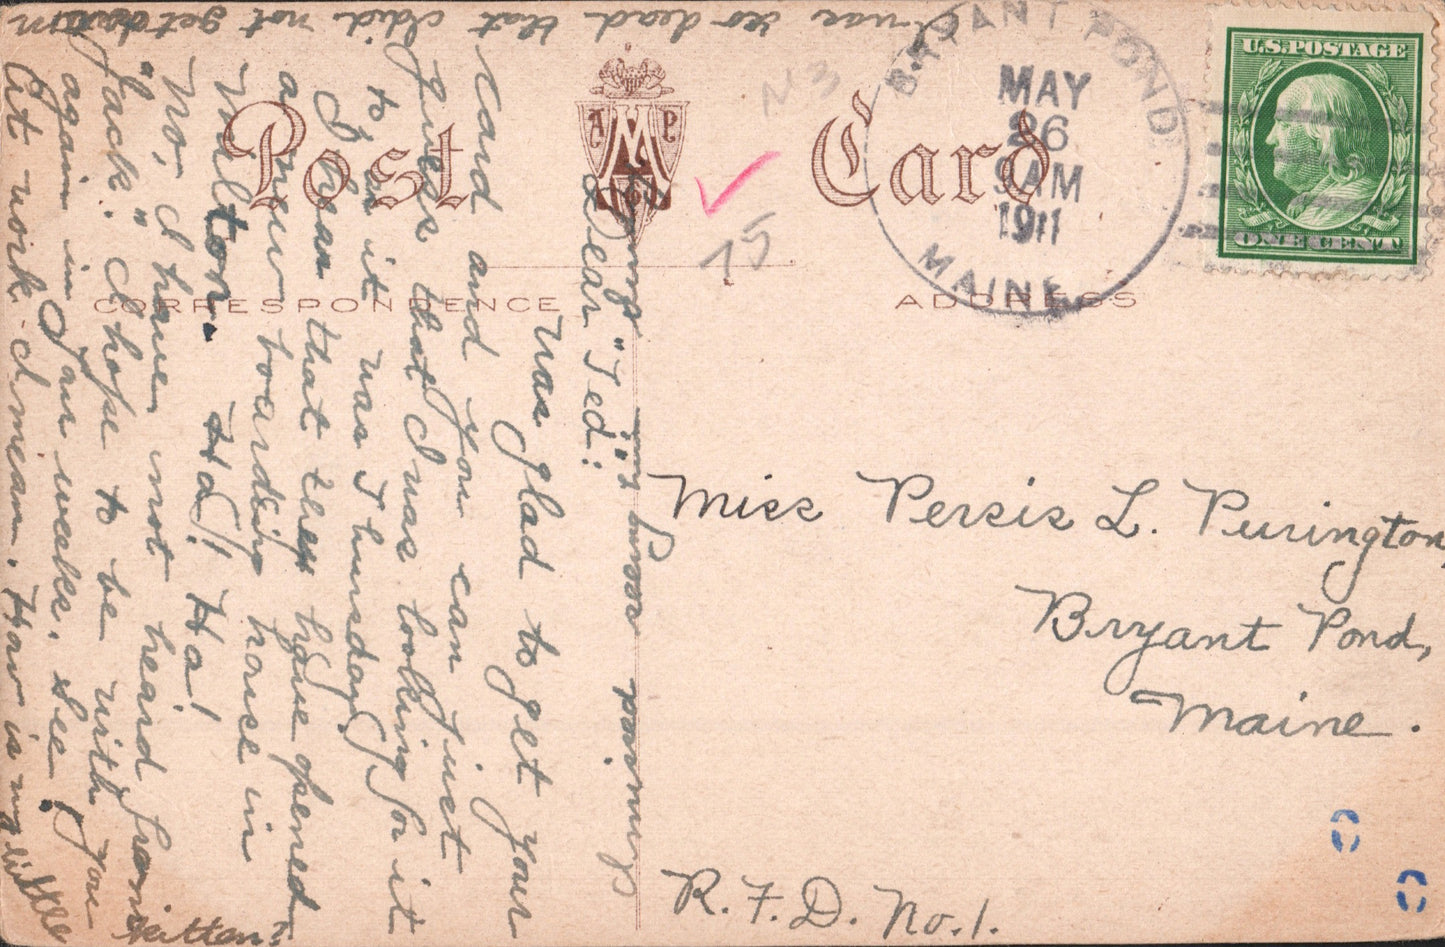 Post Card
A M P
CORRESPONDENCE
ADDRESS
BRYANT POND
MAY
26
9 AM
1911
MAINE
U.S. POSTAGE
ONE CENT
N 3
75
Miss Persis L. Purington,
Bryant Pond,
Maine.
R.F.D. No. 1.
Dear "Ted":
Was glad to get your
card and you can just
guess that I was looking for it
to in it was Thursday.
I hear that they have opened
a new boarding house in
Milton. Ha! Ha!
No, I have not heard from
"Jack". I hope to be with you
again in four weeks. See?
At work I mean. How is my little
Kitten?
I was so dead that I did not get down
Sunday morning